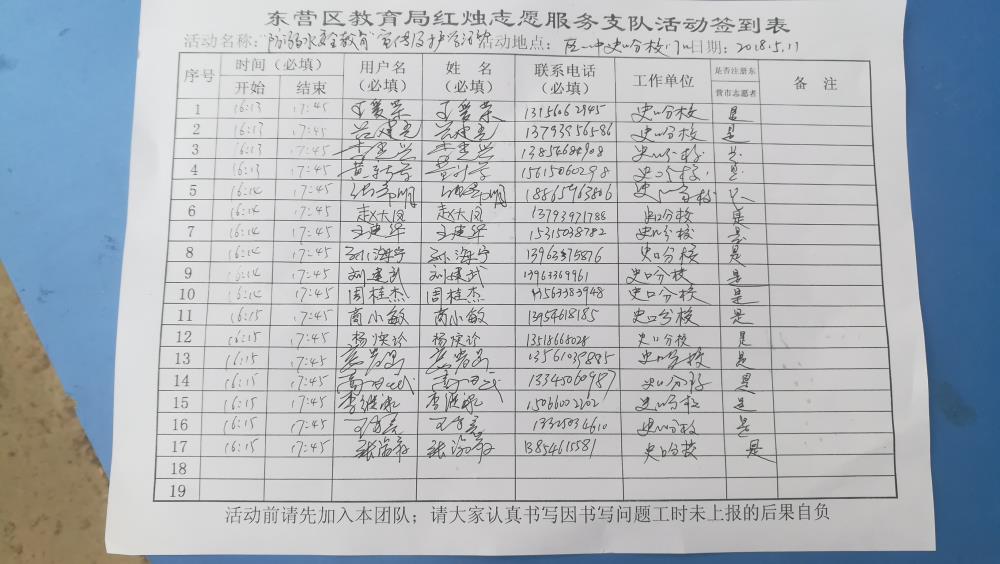 东营区教育局红烛志愿服务支队活动签到表
活动名称：“防溺水安全教育”宣传及护学活动 活动地点：区一中史口分校门口 日期：2018.5.11
序号 时间（必填） 用户名（必填） 姓 名（必填） 联系电话（必填） 工作单位 是否注册东营市志愿者 备 注
开始 结束
1 16:13 17:45 王爱荣 王爱荣 1315662945 史口分校 是
2 16:13 17:45 吕建亮 吕建亮 13793956586 史口分校 是
3 16:13 17:45 李建兴 李建兴 13854684908 史口分校 是
4 16:13 17:45 黄 黄 15615060298 史口分校 是
5 16:14 17:45 明 明 18865963806 史口分校 是
6 16:14 17:45 赵大国 赵大国 13793971788 史口分校 是
7 16:14 17:45 王建华 王建华 15315038782 史口分校 是
8 16:14 17:45 孙海宁 孙海宁 13963375876 史口分校 是
9 16:14 17:45 刘建武 刘建武 13963369961 史口分校 是
10 16:14 17:45 周桂杰 周桂杰 15563383948 史口分校 是
11 16:15 17:45 商小敏 商小敏 13954618185 史口分校 是
12 16:15 17:45 杨 杨 13518668028 史口分校 是
13 16:15 17:45 13561039885 史口分校 是
14 16:15 17:45 13345060987 史口分校 是
15 16:15 17:45 李继永 李继永 15066002202 史口分校 是
16 16:15 17:45 王 王 13325034610 史口分校 是
17 16:15 17:45 张 张 13854615581 史口分校 是
18
19
活动前请先加入本团队；请大家认真书写因书写问题工时未上报的后果自负